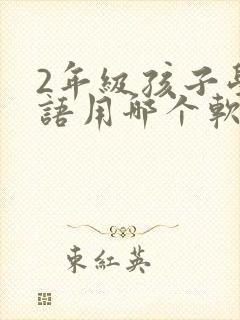 2年級孩子學
語用哪个軟
東紅英